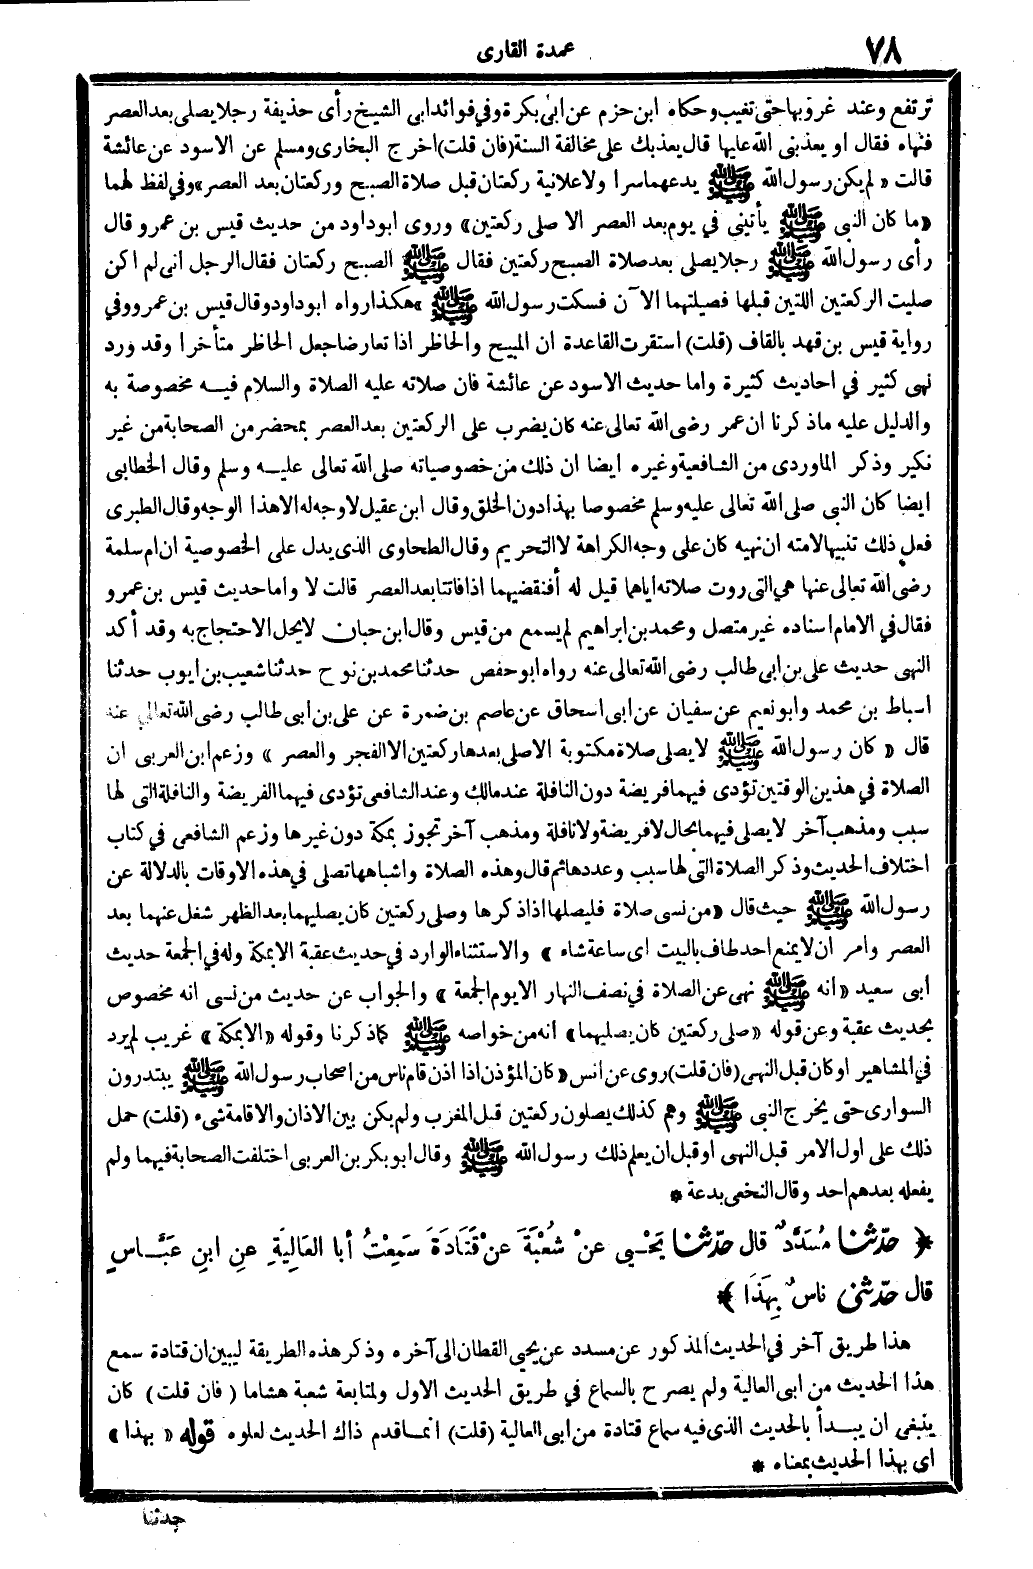 ٧٨
عمدة القارى
ترتفع وعند غروبها حتى تغيب وحكاه ابن حزم عن ابى بكرة وفي فوائد ابى الشيخ رأى حذيفة رجلا يصلى بعد العصر
فنهاه فقال او يعذبنى الله عليها قال يعذبك على مخالفة السنة (فان قلت) اخرج البخارى ومسلم عن الاسود عن عائشة
قالت « لم يكن رسول الله ﷺ يدعهما سرا ولا علانية ركعتان قبل صلاة الصبح وركعتان بعد العصر » وفي لفظ لهما
« ما كان النبى ﷺ يأتينى في يوم بعد العصر الا صلى ركعتين » وروى ابو داود من حديث قيس بن عمرو قال
رأى رسول الله ﷺ رجلا يصلى بعد صلاة الصبح ركعتين فقال ﷺ الصبح ركعتان فقال الرجل انى لم اكن
صليت الركعتين اللتين قبلها فصليتهما الآن فسكت رسول الله ﷺ » هكذا رواه ابو داود وقال قيس بن عمرو وفي
رواية قيس بن قهد بالقاف (قلت) استقرت القاعدة ان المبيح والحاظر اذا تعارضا جعل الحاظر متأخرا وقد ورد
نهى كثير في احاديث كثيرة واما حديث الاسود عن عائشة فان صلاته عليه الصلاة والسلام فيه مخصوصة به
والدليل عليه ما ذكرنا ان عمر رضى الله تعالى عنه كان يضرب على الركعتين بعد العصر بمحضر من الصحابة من غير
نكير وذكر الماوردى من الشافعية وغيره ايضا ان ذلك من خصوصياته صلى الله تعالى عليه وسلم وقال الخطابى
ايضا كان النبى صلى الله تعالى عليه وسلم مخصوصا بهذا دون الخلق وقال ابن عقيل لا وجه له الا هذا الوجه وقال الطبرى
فعل ذلك تنبيها لامته ان نهيه كان على وجه الكراهة لا التحريم وقال الطحاوى الذى يدل على الخصوصية ان ام سلمة
رضى الله تعالى عنها هي التى روت صلاته اياهما قيل له أفنقضيهما اذا فاتتا بعد العصر قالت لا واما حديث قيس بن عمرو
فقال في الامام اسناده غير متصل ومحمد بن ابراهيم لم يسمع من قيس وقال ابن حبان لا يحل الاحتجاج به وقد أكد
النهى حديث على بن ابى طالب رضى الله تعالى عنه رواه ابو حفص حدثنا محمد بن نوح حدثنا شعيب بن ايوب حدثنا
اسباط بن محمد وابو نعيم عن سفيان عن ابى اسحاق عن عاصم بن ضمرة عن على بن ابى طالب رضى الله تعالى عنه
قال « كان رسول الله ﷺ لا يصلى صلاة مكتوبة الا صلى بعدها ركعتين الا الفجر والعصر » وزعم ابن العربى ان
الصلاة في هذين الوقتين تؤدى فيهما فريضة دون النافلة عند مالك وعند الشافعى تؤدى فيهما الفريضة والنافلة التى لها
سبب ومذهب آخر لا يصلى فيهما بحال لا فريضة ولا نافلة ومذهب آخر تجوز بمكة دون غيرها وزعم الشافعى في كتاب
اختلاف الحديث وذكر الصلاة التى لها سبب وعددها ثم قال وهذه الصلاة واشباهها تصلى في هذه الاوقات بالدلالة عن
رسول الله ﷺ حيث قال « من نسى صلاة فليصلها اذا ذكرها وصلى ركعتين كان يصليهما بعد الظهر شغل عنهما بعد
العصر وامر ان لا يمنع احد طاف بالبيت اى ساعة شاء » والاستثناء الوارد في حديث عقبة الا بمكة وله في الجمعة حديث
أبى سعيد « انه ﷺ نهى عن الصلاة في نصف النهار الا يوم الجمعة » والجواب عن حديث من نسى انه مخصوص
بحديث عقبة وعن قوله « صلى ركعتين كان يصليهما » انه من خواصه ﷺ كما ذكرنا وقوله « الا بمكة » غريب لم يرد
في المشاهير او كان قبل النهى (فان قلت) روى عن انس « كان المؤذن اذا اذن قام ناس من اصحاب رسول الله ﷺ يبتدرون
السوارى حتى يخرج النبى ﷺ وهم كذلك يصلون ركعتين قبل المغرب ولم يكن بين الاذان والاقامة شىء (قلت) حمل
ذلك على اول الامر قبل النهى او قبل ان يعلم ذلك رسول الله ﷺ وقال ابو بكر بن العربى اختلفت الصحابة فيهما ولم
يفعله بعدهم احد وقال النخعى بدعة *
﴿ حدّثنا مُسَدَّدٌ قال حدّثنا يَحْـي عنْ شُعْبَةَ عنْ قَتَادَةَ سَمِعْتُ أبا العَالِيَةِ عنِ ابنِ عَبَّـاسٍ
قال حدّثنى ناسٌ بِهَذَا ﴾ *
هذا طريق آخر في الحديث المذكور عن مسدد عن يحيى القطان الى آخره وذكر هذه الطريقة ليبين ان قتادة سمع
هذا الحديث من ابى العالية ولم يصرح بالسماع في طريق الحديث الاول ولمتابعة شعبة هشاما ( فان قلت ) كان
ينبغى ان يبدأ بالحديث الذى فيه سماع قتادة من ابى العالية (قلت) انما قدم ذاك الحديث لعلوه قوله « بهذا »
اى بهذا الحديث بمعناه *
حدثنا